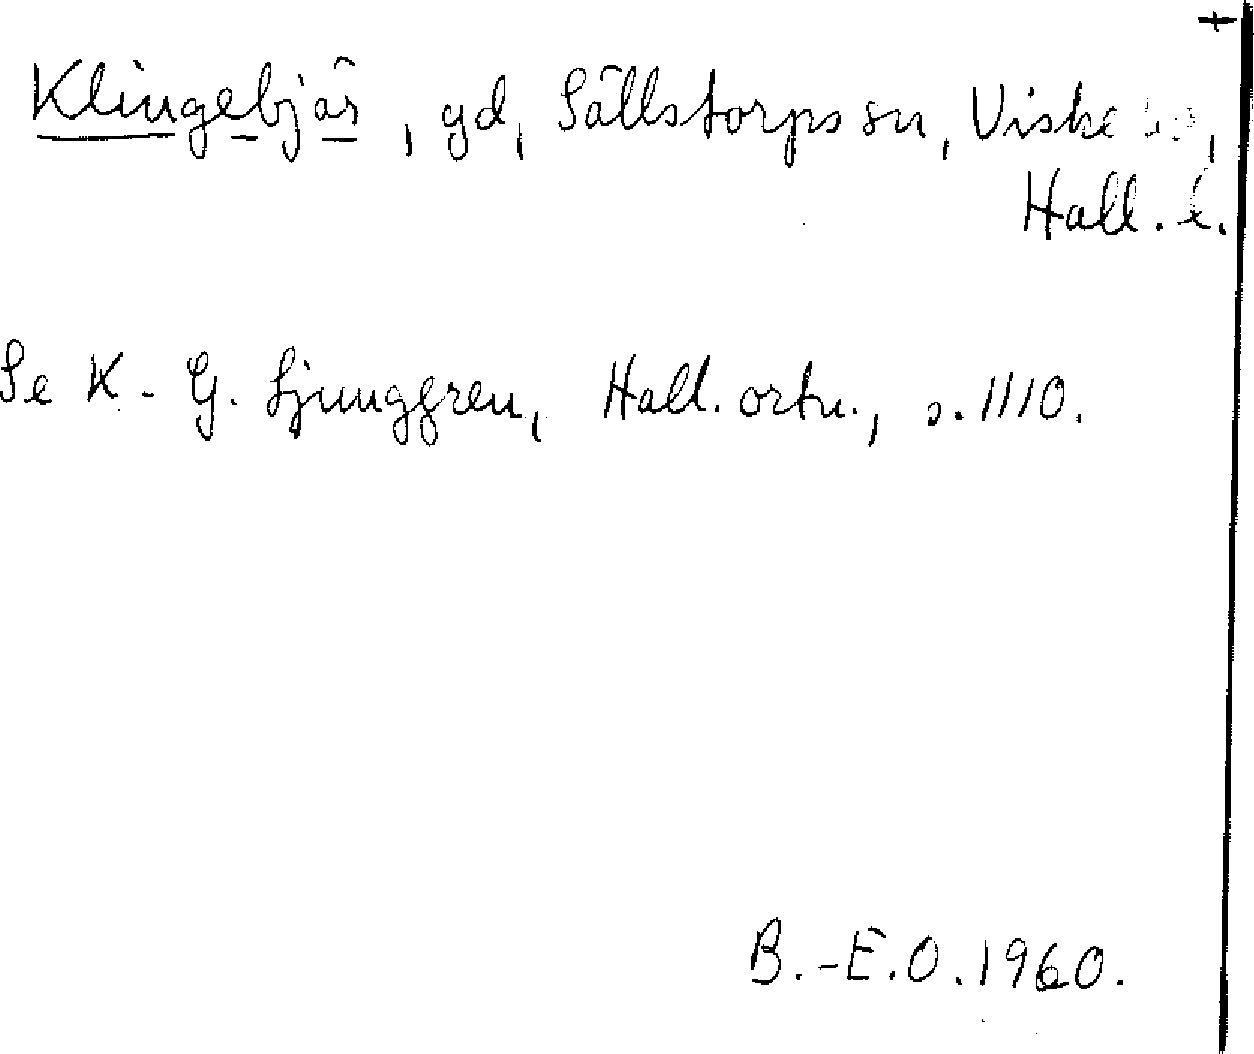 +
Klingebjär, gd, Sällstorps sn, Viske
Hall. l.
Se K.-G. Ljunggren, Hall. ortn., s. 1110.
B.-E.O. 1960.